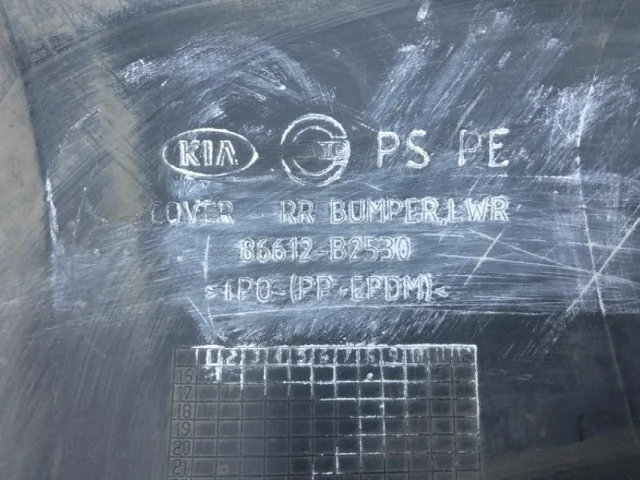 KIA PS PE
COVER - RR BUMPER,LWR
86612-B2530
>TPO-(PP+EPDM)<
1 2 3 4 5 6 7 8 9 10 11 12
16
17
18
19
20
21